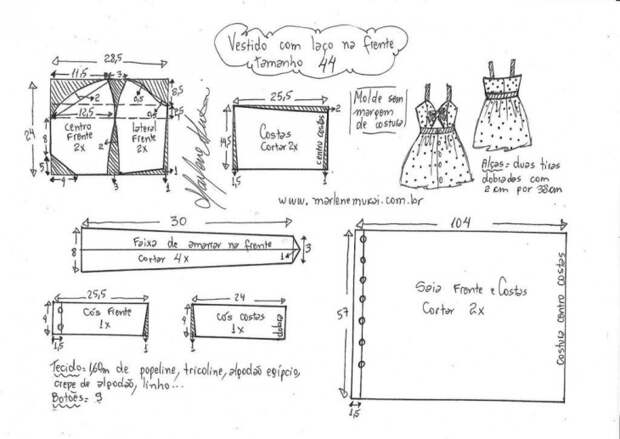 Vestido com laço na frente
tamanho 44
28,5
11,5
3
2
0,5
8,5
0,5
1,5
12,5
24
8
5
centro
frente
2x
lateral
frente
2x
1
4
3
1
Marlene Mukai
25,5
2
Costas
Cortar 2x
19,5
centro costas
1,5
1
Molde sem
margem
de costura
Alças = duas tiras
dobradas com
2 cm por 38cm
www.marlenemukai.com.br
30
8
Faixa de amarrar na frente
Cortar 4x
1
3
25,5
4
Cós frente
1x
1,5
1
24
4
Cós costas
1x
dobra
1
104
57
Saia Frente e Costas
Cortar 2x
costura centro costas
1,5
Tecido = 1,60m de popeline, tricoline, algodão egípcio,
crepe de algodão, linho...
Botões = 9